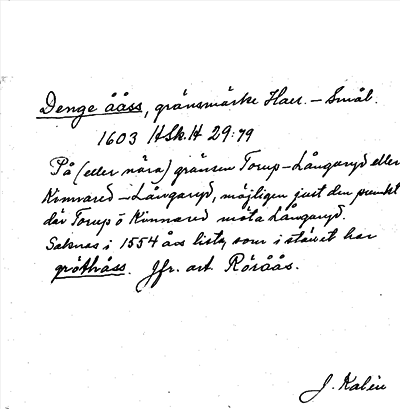 Denge ååss, gränsmärke Hall. – Smål.
1603 HSk.H 29:79
På (eller nära) gränsen Torup–Långaryd eller
Kinnared–Långaryd, möjligen just den punkt
där Torup o Kinnared möta Långaryd.
Saknas i 1554 års lista, som i stället har
gröthåss. Jfr. art. Rösåås.
J. Kalén